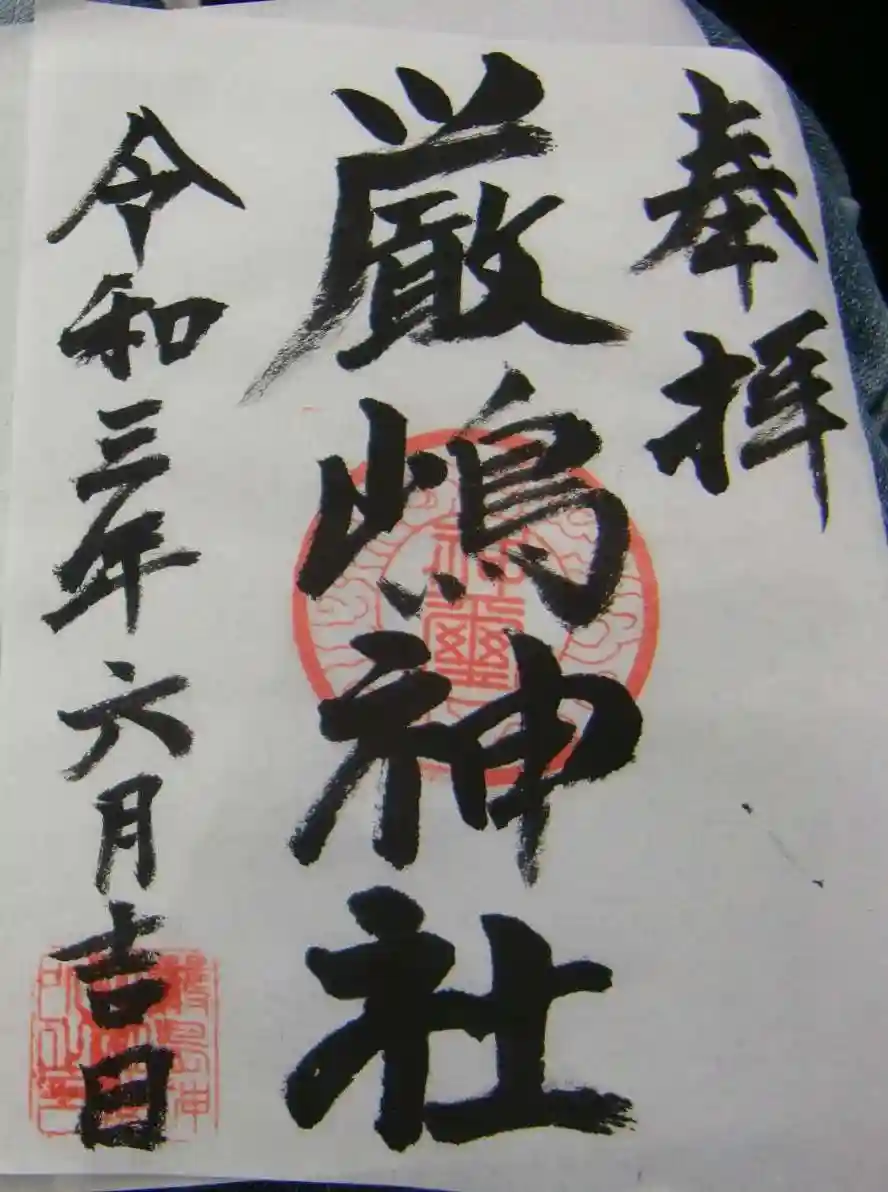 奉拝
厳嶋神社
令和三年六月吉日